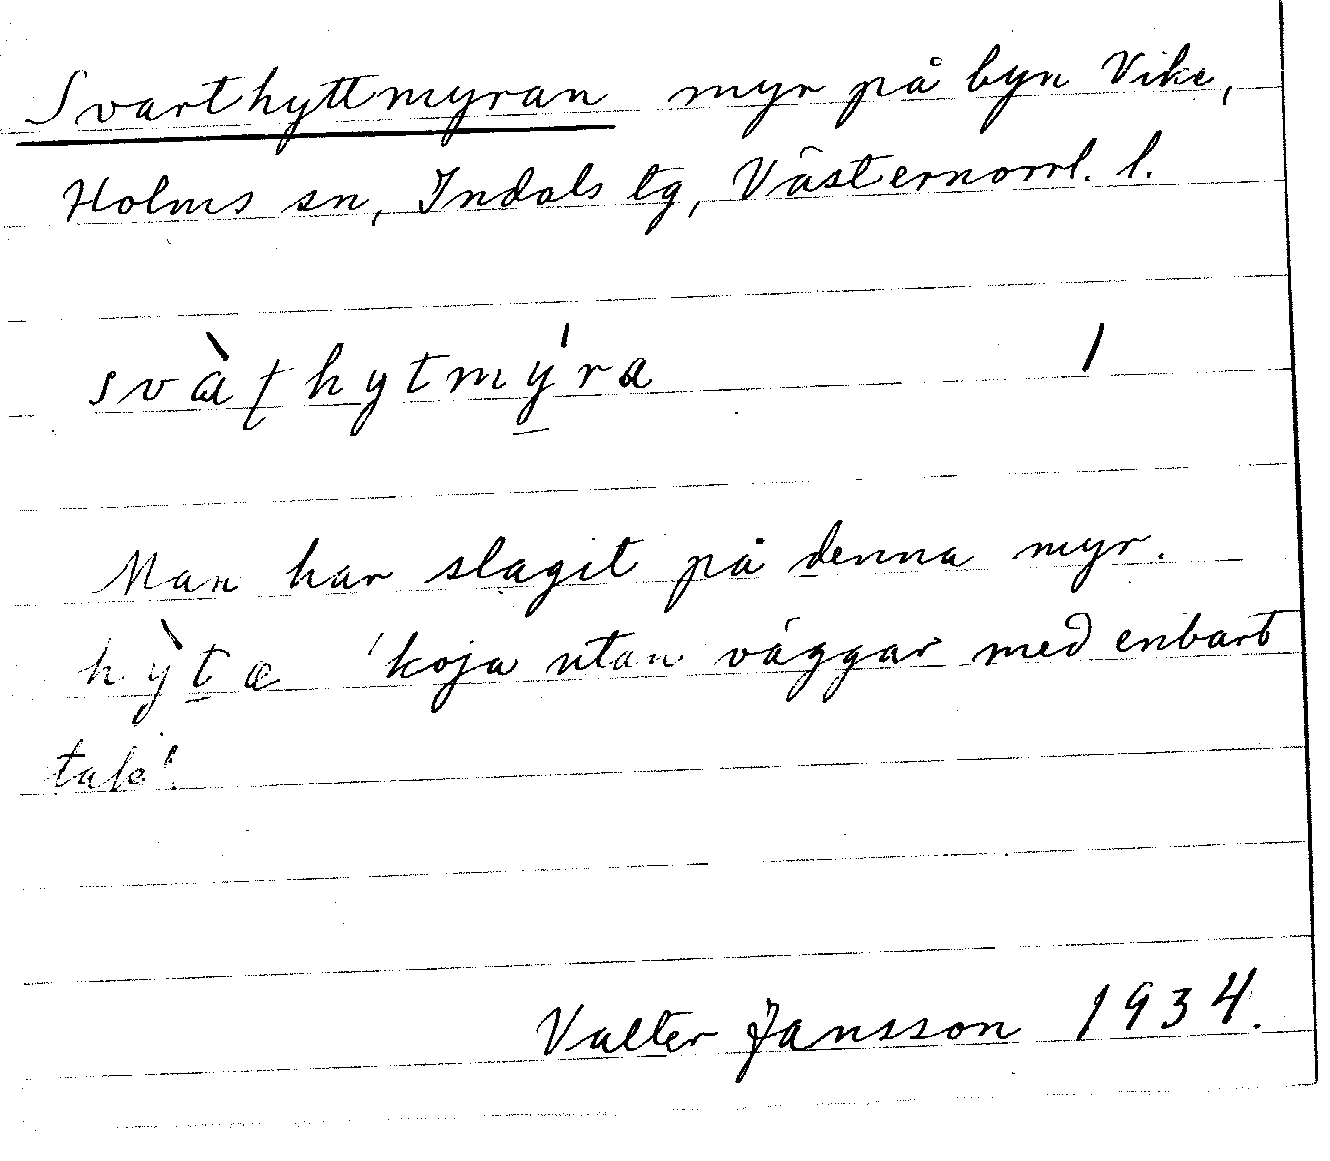 Svarthyttmyran myr på byn Vike,
Holms sn, Indals tg, Västernorrl. l.
svàƭhytmý̱ra 1
Man har slagit på denna myr.
hỳṯæ 'koja utan väggar med enbart
tak'.
Valter Jansson 1934.